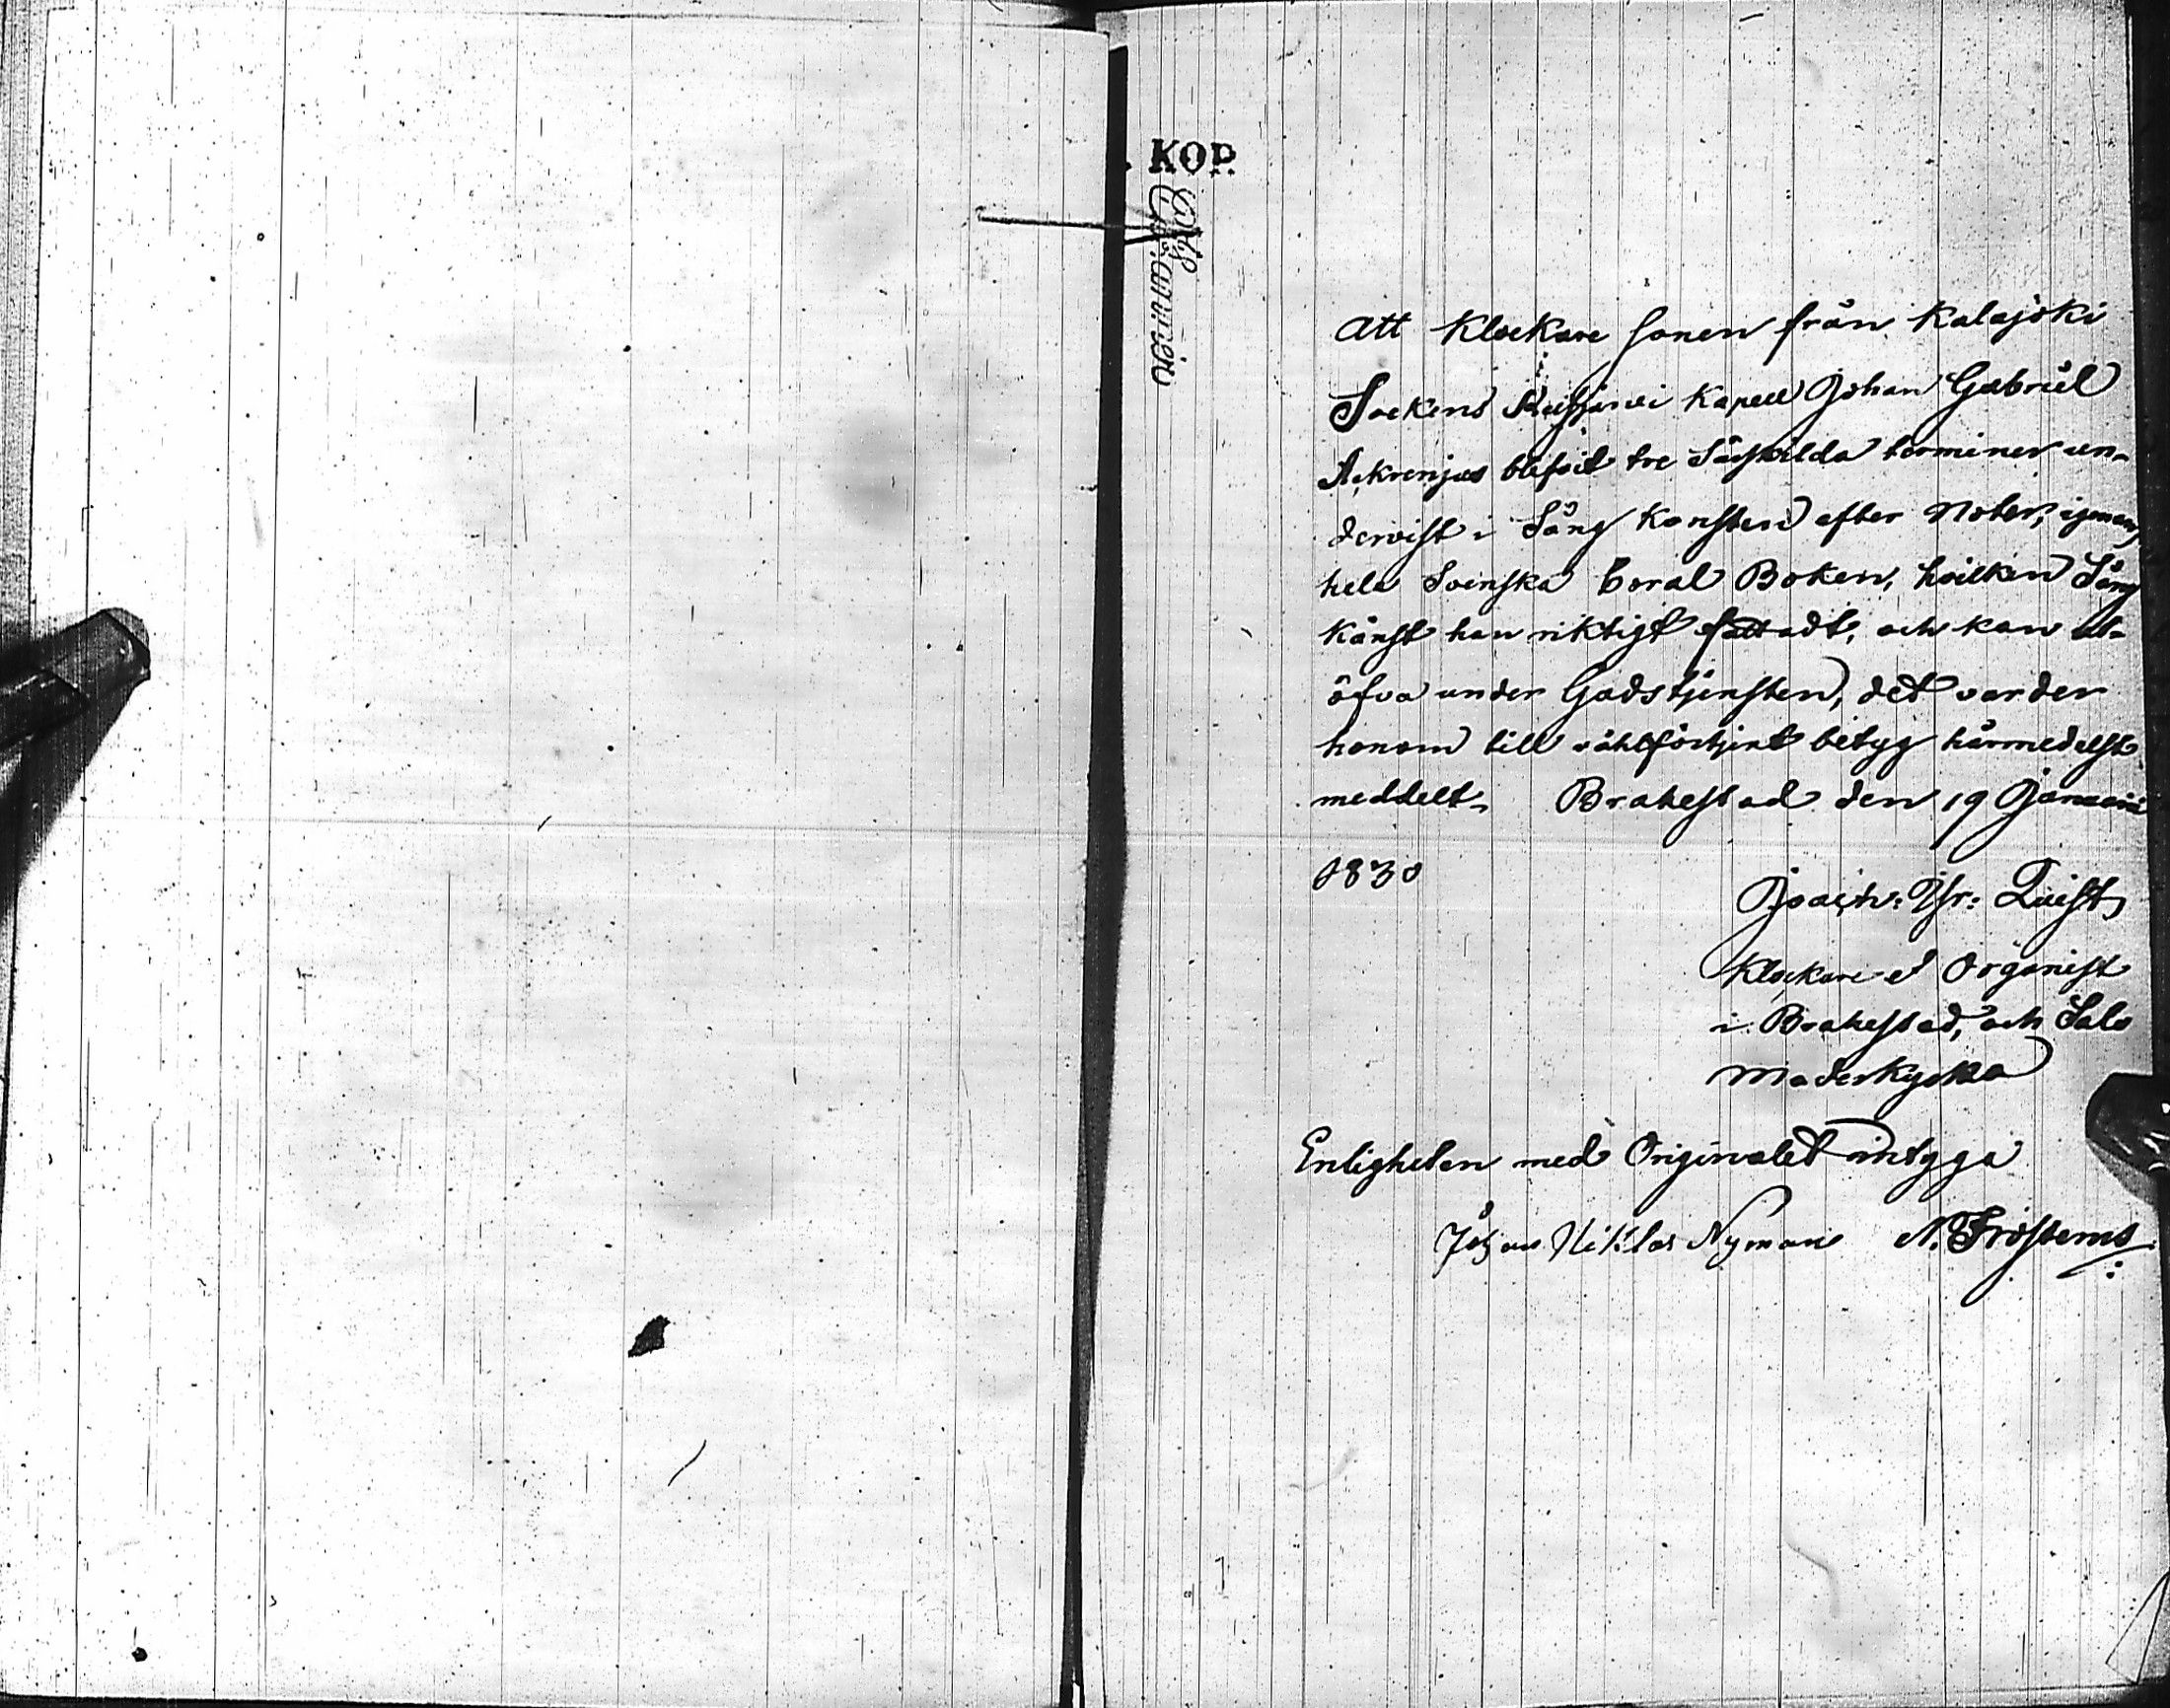 KOP.
Att Klockare Sonen från Kalajoki
Sockens Reisjärvi Kapell Johan Gabriel
Ackrenjus blifvit tre Särskilda terminer un-
dervist i Sång Konsten efter Noter, igenom
hela Svenska Coral Boken, hvilken Sång
Känst han riktigt fattadt, och kan ut-
öfva under Gudstjensten, det varder
honom till vählförtjent betyg härmedelst
meddelt. Brahestad den 19 Januarii
1830
Joach: Isr: Quist
Klockare et Organist
i Brahestad, och Salo
Moderkyrka
Enligheten med Originalet intyga
Johan Niklas Nyman N. Frosterus